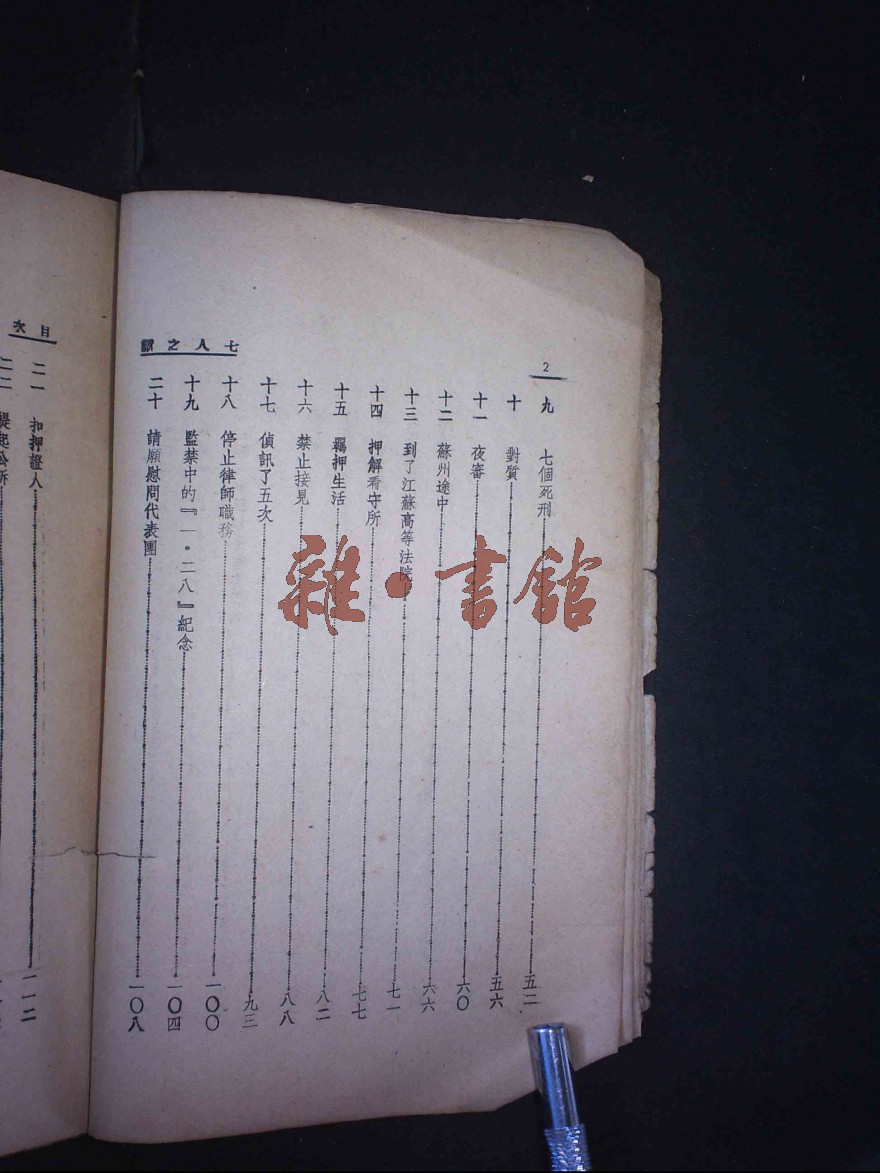 2
七人之獄
九 七個死刑 五二
十 對質 五六
十一 夜審 六〇
十二 蘇州途中 六六
十三 到了江蘇高等法院 七一
十四 押解看守所 七七
十五 羈押生活 八二
十六 禁止接見 八八
十七 偵訊了五次 九三
十八 停止律師職務 一〇〇
十九 監禁中的『一·二八』紀念 一〇四
二十 請願慰問代表團 一〇八
目次
二一 扣押證人 一一二
二二 提起公訴
雜·書館